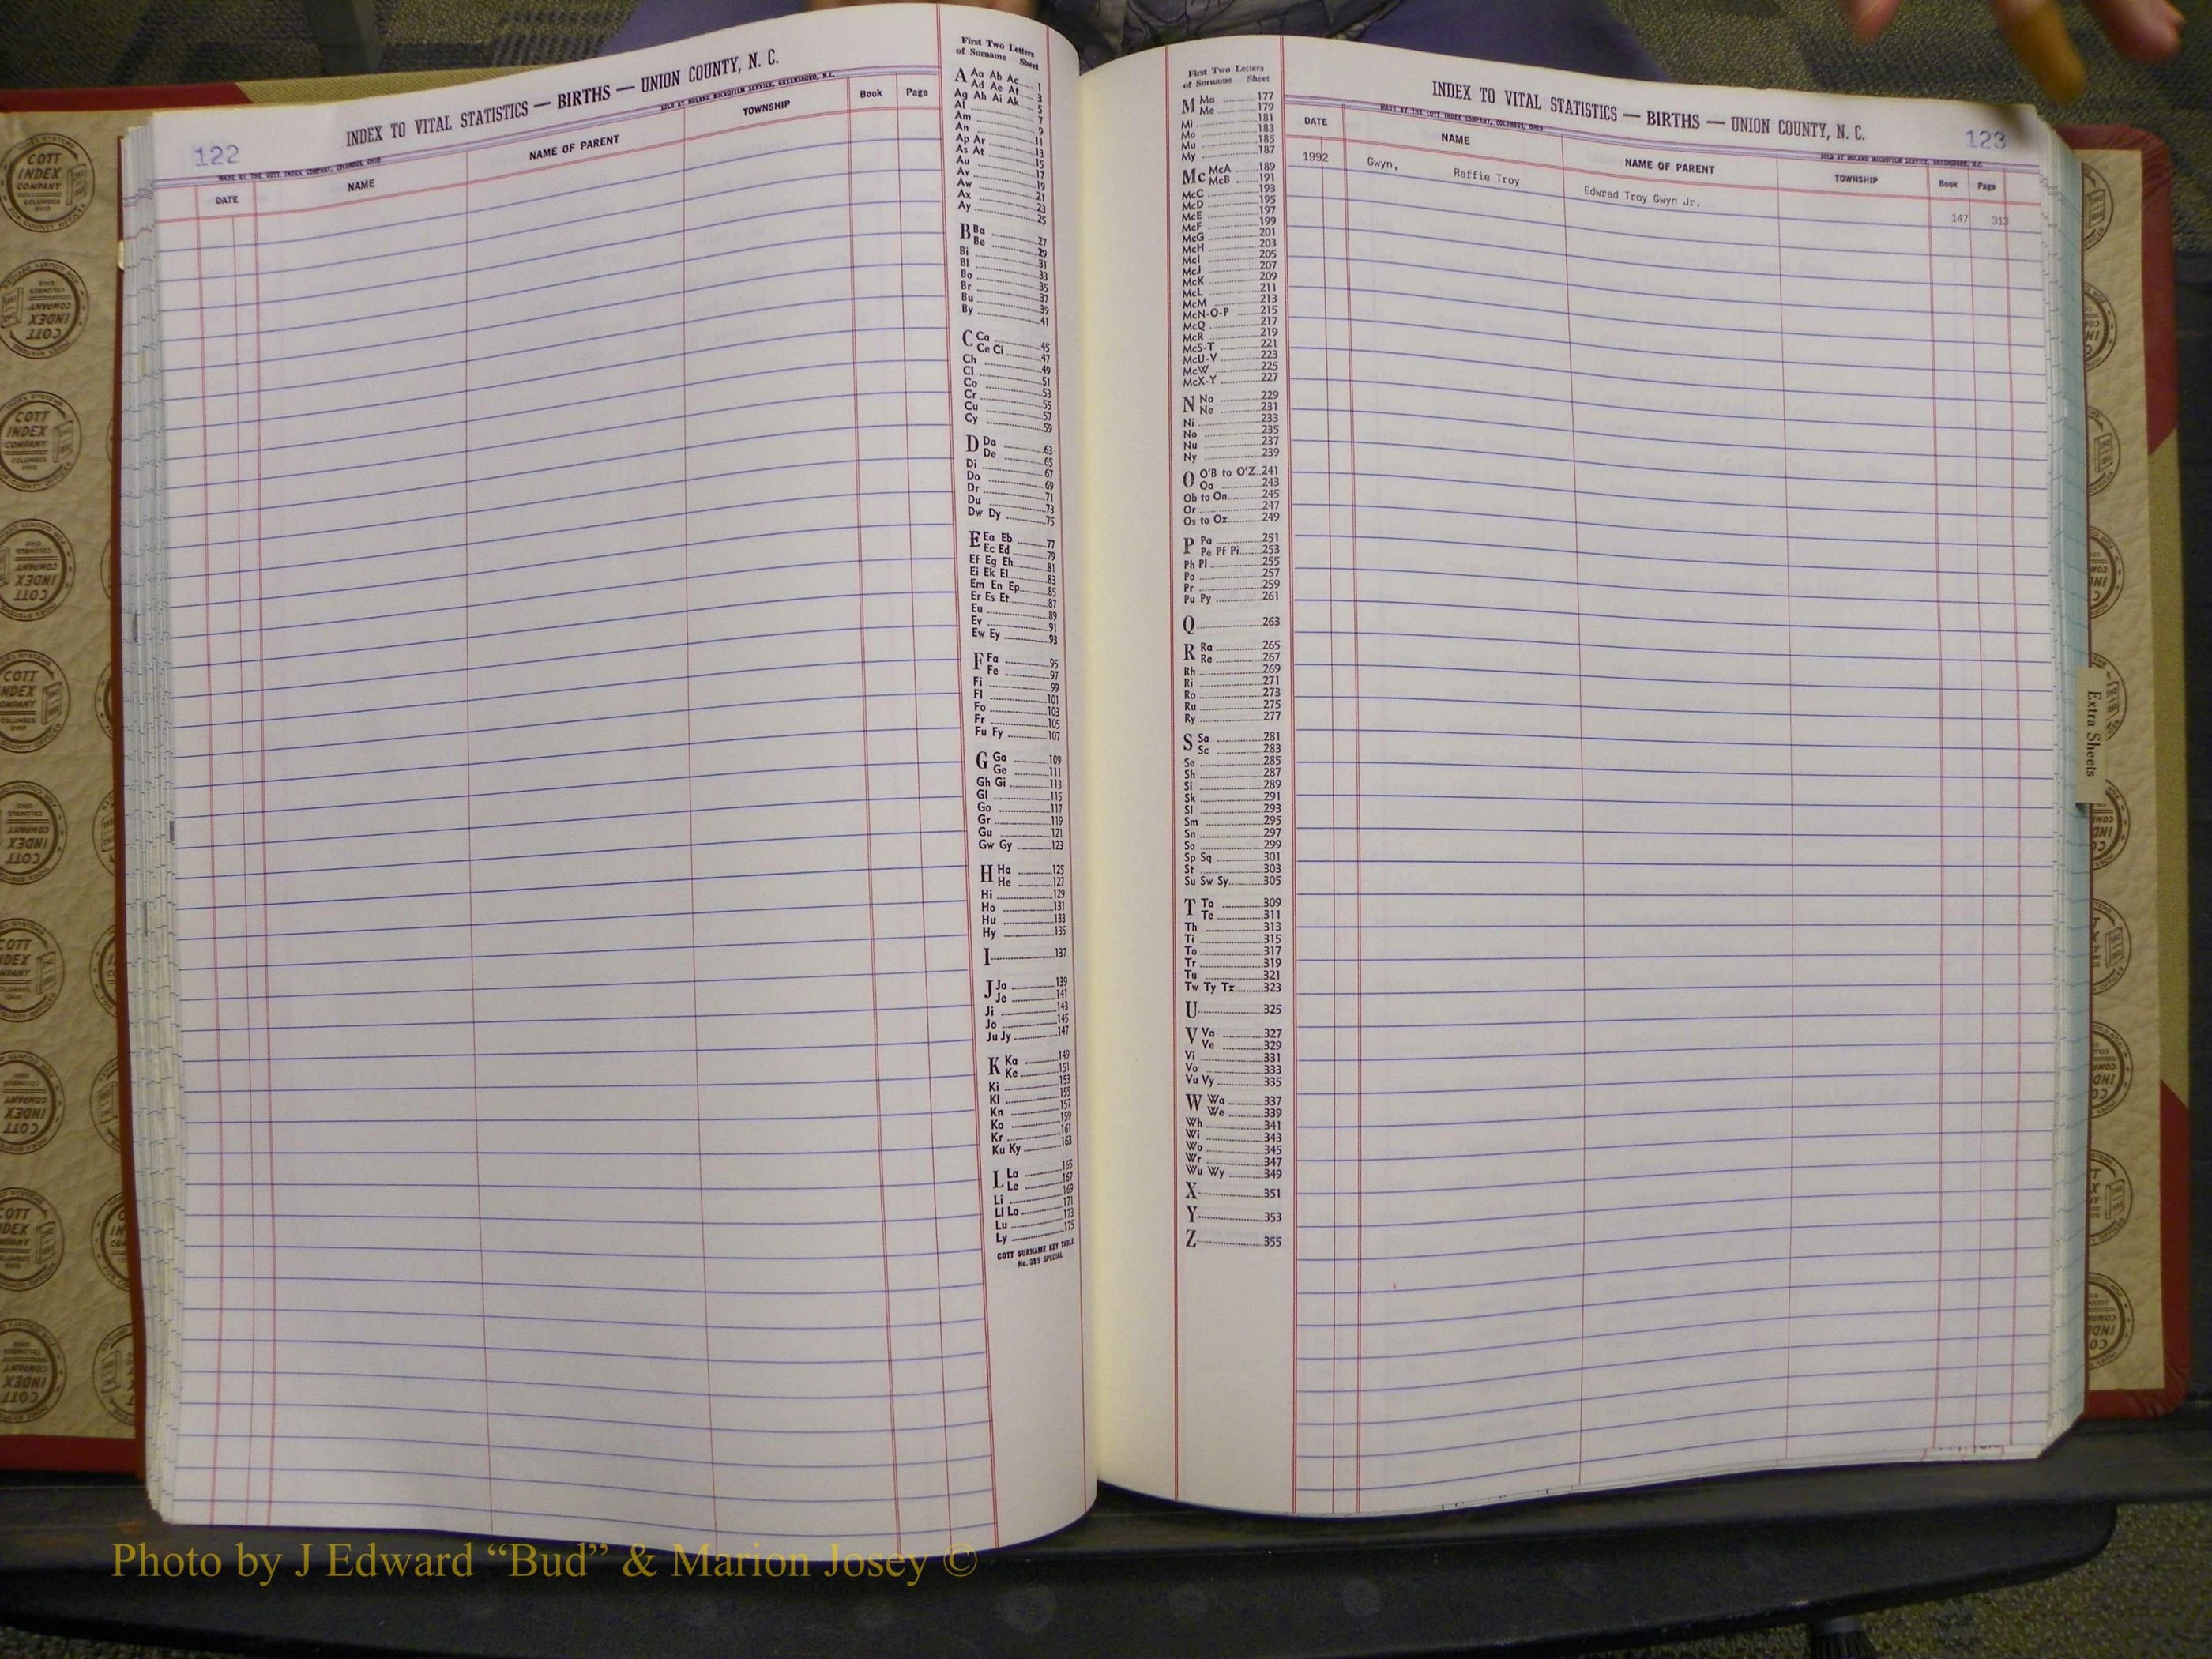 122
INDEX TO VITAL STATISTICS — BIRTHS — UNION COUNTY, N. C.
MADE BY THE COTT INDEX COMPANY, COLUMBUS, OHIO
SOLD BY NOLAND MICROFILM SERVICE, GREENSBORO, N.C.
DATE NAME NAME OF PARENT TOWNSHIP Book Page
First Two Letters
of Surname Sheet
A Aa Ab Ac 1
Ad Ae Af 3
Ag Ah Ai Ak 5
Al 7
Am 9
An 11
Ap Ar 13
As At 15
Au 17
Av 19
Aw 21
Ax 23
Ay 25
B Ba 27
Be 29
Bi 31
Bl 33
Bo 35
Br 37
Bu 39
By 41
C Ca 45
Ce Ci 47
Ch 49
Cl 51
Co 53
Cr 55
Cu 57
Cy 59
D Da 63
De 65
Di 67
Do 69
Dr 71
Du 73
Dw Dy 75
E Ea Eb 77
Ec Ed 79
Ef Eg Eh 81
Ei Ek El 83
Em En Ep 85
Er Es Et 87
Eu 89
Ev 91
Ew Ey 93
F Fa 95
Fe 97
Fi 99
Fl 101
Fo 103
Fr 105
Fu Fy 107
G Ga 109
Ge 111
Gh Gi 113
Gl 115
Go 117
Gr 119
Gu 121
Gw Gy 123
H Ha 125
He 127
Hi 129
Ho 131
Hu 133
Hy 135
I 137
J Ja 139
Je 141
Ji 143
Jo 145
Ju Jy 147
K Ka 149
Ke 151
Ki 153
Kl 155
Kn 157
Ko 159
Kr 161
Ku Ky 163
L La 165
Le 167
Li 169
Ll Lo 171
Lu 173
Ly 175
COTT SURNAME KEY TABLE
No. 355 SPECIAL
First Two Letters
of Surname Sheet
M Ma 177
Me 179
Mi 181
Mo 183
Mu 185
My 187
Mc McA 189
McB 191
McC 193
McD 195
McE 197
McF 199
McG 201
McH 203
McI 205
McJ 207
McK 209
McL 211
McM 213
McN-O-P 215
McQ 217
McR 219
McS-T 221
McU-V 223
McW 225
McX-Y 227
N Na 229
Ne 231
Ni 233
No 235
Nu 237
Ny 239
O O'B to O'Z 241
Oa 243
Ob to On 245
Or 247
Os to Oz 249
P Pa 251
Pe Pf Pi 253
Ph Pl 255
Po 257
Pr 259
Pu Py 261
Q 263
R Ra 265
Re 267
Rh 269
Ri 271
Ro 273
Ru 275
Ry 277
S Sa 281
Sc 283
Se 285
Sh 287
Si 289
Sk 291
Sl 293
Sm 295
Sn 297
So 299
Sp Sq 301
St 303
Su Sw Sy 305
T Ta 309
Te 311
Th 313
Ti 315
To 317
Tr 319
Tu 321
Tw Ty Tz 323
U 325
V Va 327
Ve 329
Vi 331
Vo 333
Vu Vy 335
W Wa 337
We 339
Wh 341
Wi 343
Wo 345
Wr 347
Wu Wy 349
X 351
Y 353
Z 355
INDEX TO VITAL STATISTICS — BIRTHS — UNION COUNTY, N. C.
123
MADE BY THE COTT INDEX COMPANY, COLUMBUS, OHIO
SOLD BY NOLAND MICROFILM SERVICE, GREENSBORO, N.C.
DATE NAME NAME OF PARENT TOWNSHIP Book Page
1992 Gwyn, Raffie Troy Edwrad Troy Gwyn Jr. 147 313
Extra Sheets
COTT
INDEX
COMPANY
COLUMBUS
OHIO
Photo by J Edward “Bud” & Marion Josey ©